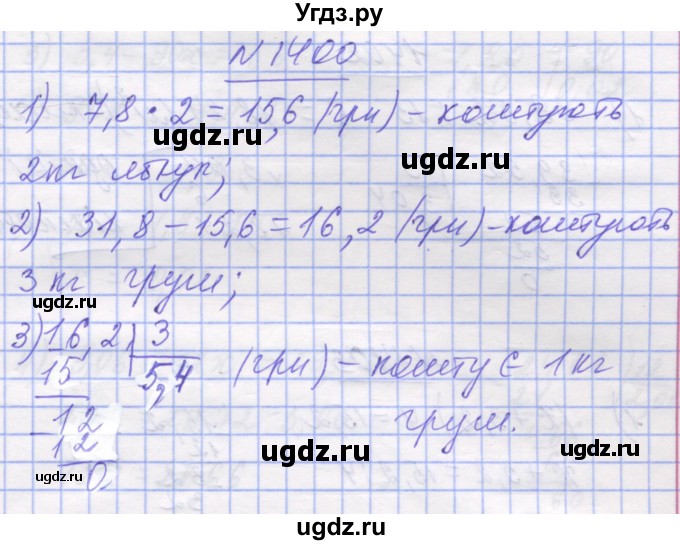 Угдз.ру
№1400
1) 7,8 · 2 = 15,6 (грн) – коштують
ugdz.ru ugdz.ru
2кг яблук;
2) 31,8 – 15,6 = 16,2 (грн) – коштують
ugdz.ru ugdz.ru
3 кг груш;
ugdz.ru ugdz.ru
3) 16,2 3 (грн) – коштує 1 кг
15 5,4
ugdz.ru
12 груш.
– 12
ugdz.ru ugdz.ru
0
ugdz.ru